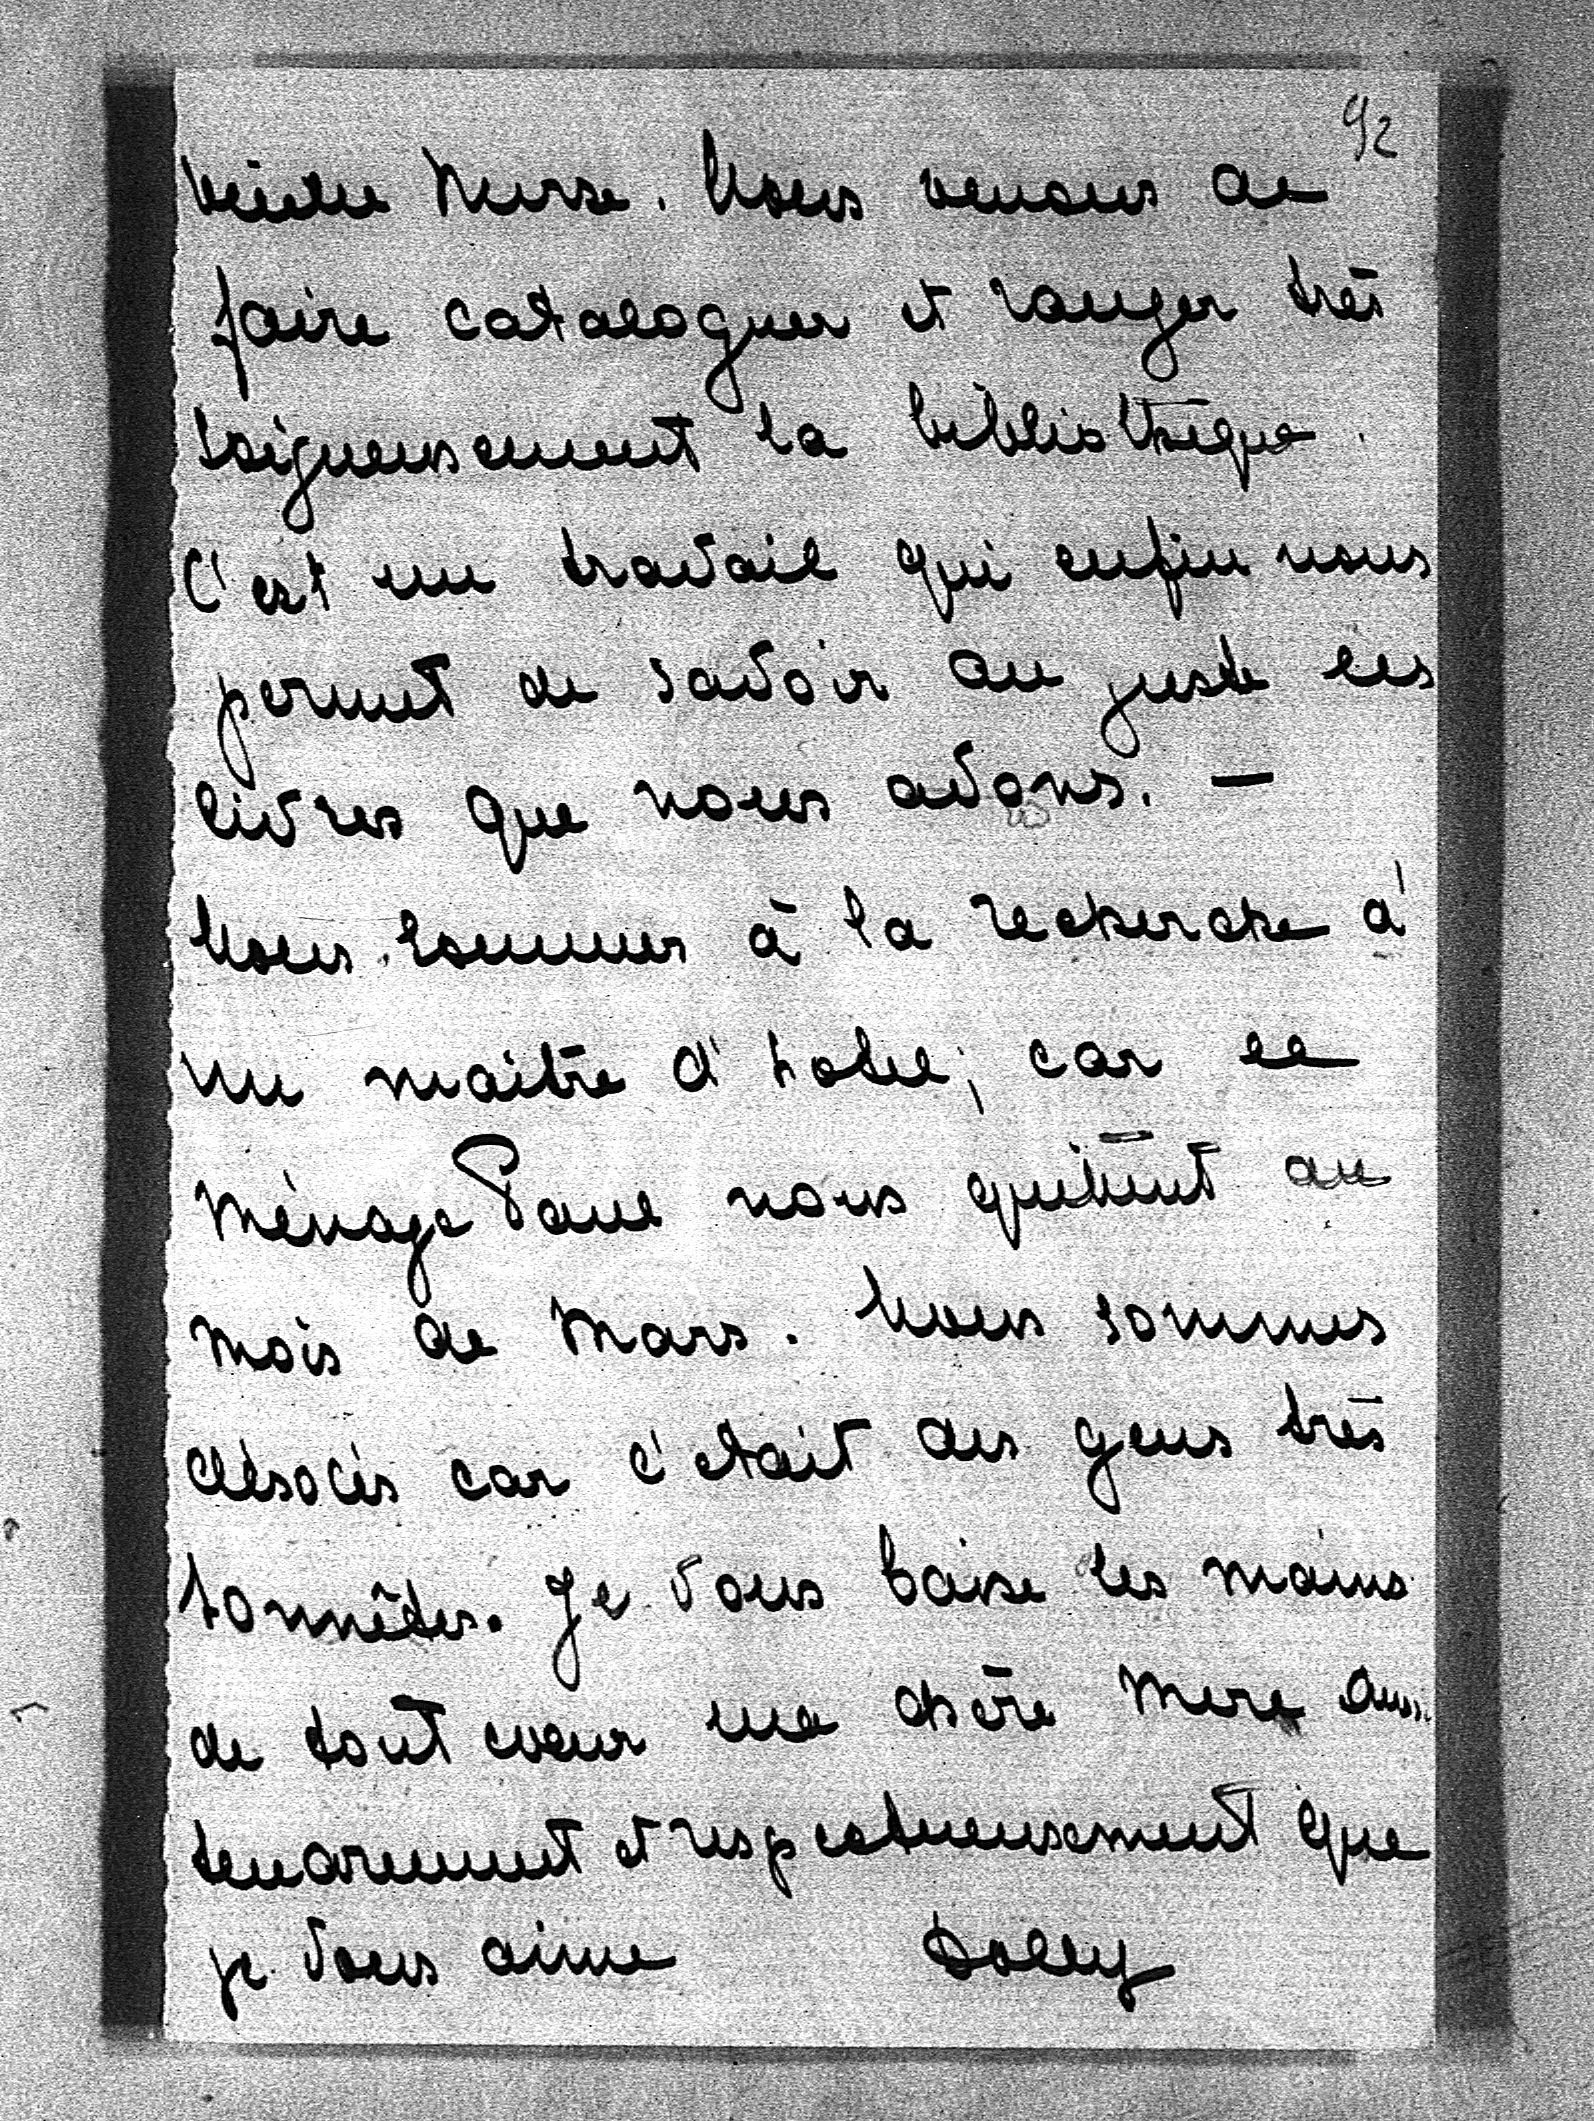 92
vieille Nurse. Nous venons de
faire cataloguer et ranger très
soigneusement la bibliothèque.
C'est un travail qui enfin nous
permet de savoir au juste les
livres que nous avons. —
Nous sommes à la recherche d'
un maître d'hotel; car le
ménage Paul nous quittent au
mois de Mars. Nous sommes
désolés car c'était des gens très
honnêtes. Je vous baise les mains
de tout coeur ma chère Mère aussi
tendrement et respectueusement que
je vous aime Dolly